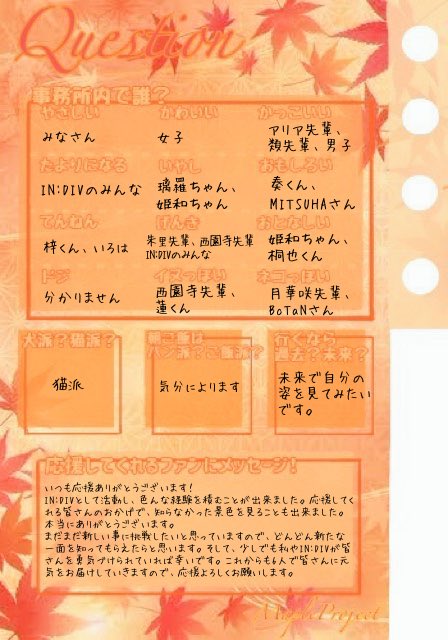 Question
事務所内で誰?
やさしい かわいい かっこいい
みなさん 女子 アリア先輩、
類先輩、男子
たよりになる いやし おもしろい
IN:DIVのみんな 璃羅ちゃん、 奏くん、
姫和ちゃん MITSUHAさん
てんねん げんき おとなしい
梓くん、いろは 朱里先輩、西園寺先輩 姫和ちゃん、
IN:DIVのみんな 桐也くん
ドジ イヌっぽい ネコっぽい
分かりません 西園寺先輩、 月華咲先輩、
蓮くん BoTaNさん
犬派?猫派? 朝ご飯は 行くなら
パン派?ご飯派? 過去?未来?
猫派 気分によります 未来で自分の
姿を見てみたい
です。
応援してくれるファンにメッセージ!
いつも応援ありがとうございます!
IN:DIVとして活動し、色んな経験を積むことが出来ました。応援してく
れる皆さんのおかげで、知らなかった景色を見ることも出来ました。
本当にありがとうございます。
まだまだ新しい事に挑戦したいと思っていますので、どんどん新たな
一面を知ってもらえたらと思います。そして、少しでも私やIN:DIVが皆
さんを勇気づけられていれば幸いです。これからも6人で皆さんに元
気をお届けしていきますので、応援よろしくお願いします。